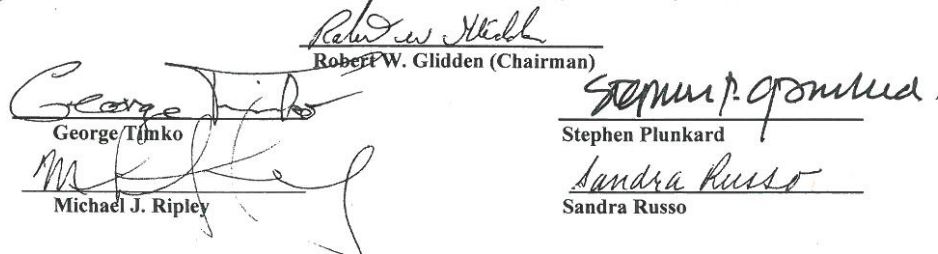 Robert W. Glidden
Robert W. Glidden (Chairman)
George Timko
George Timko
Stephen P.
Stephen Plunkard
Michael J. Ripley
Sandra Russo
Sandra Russo